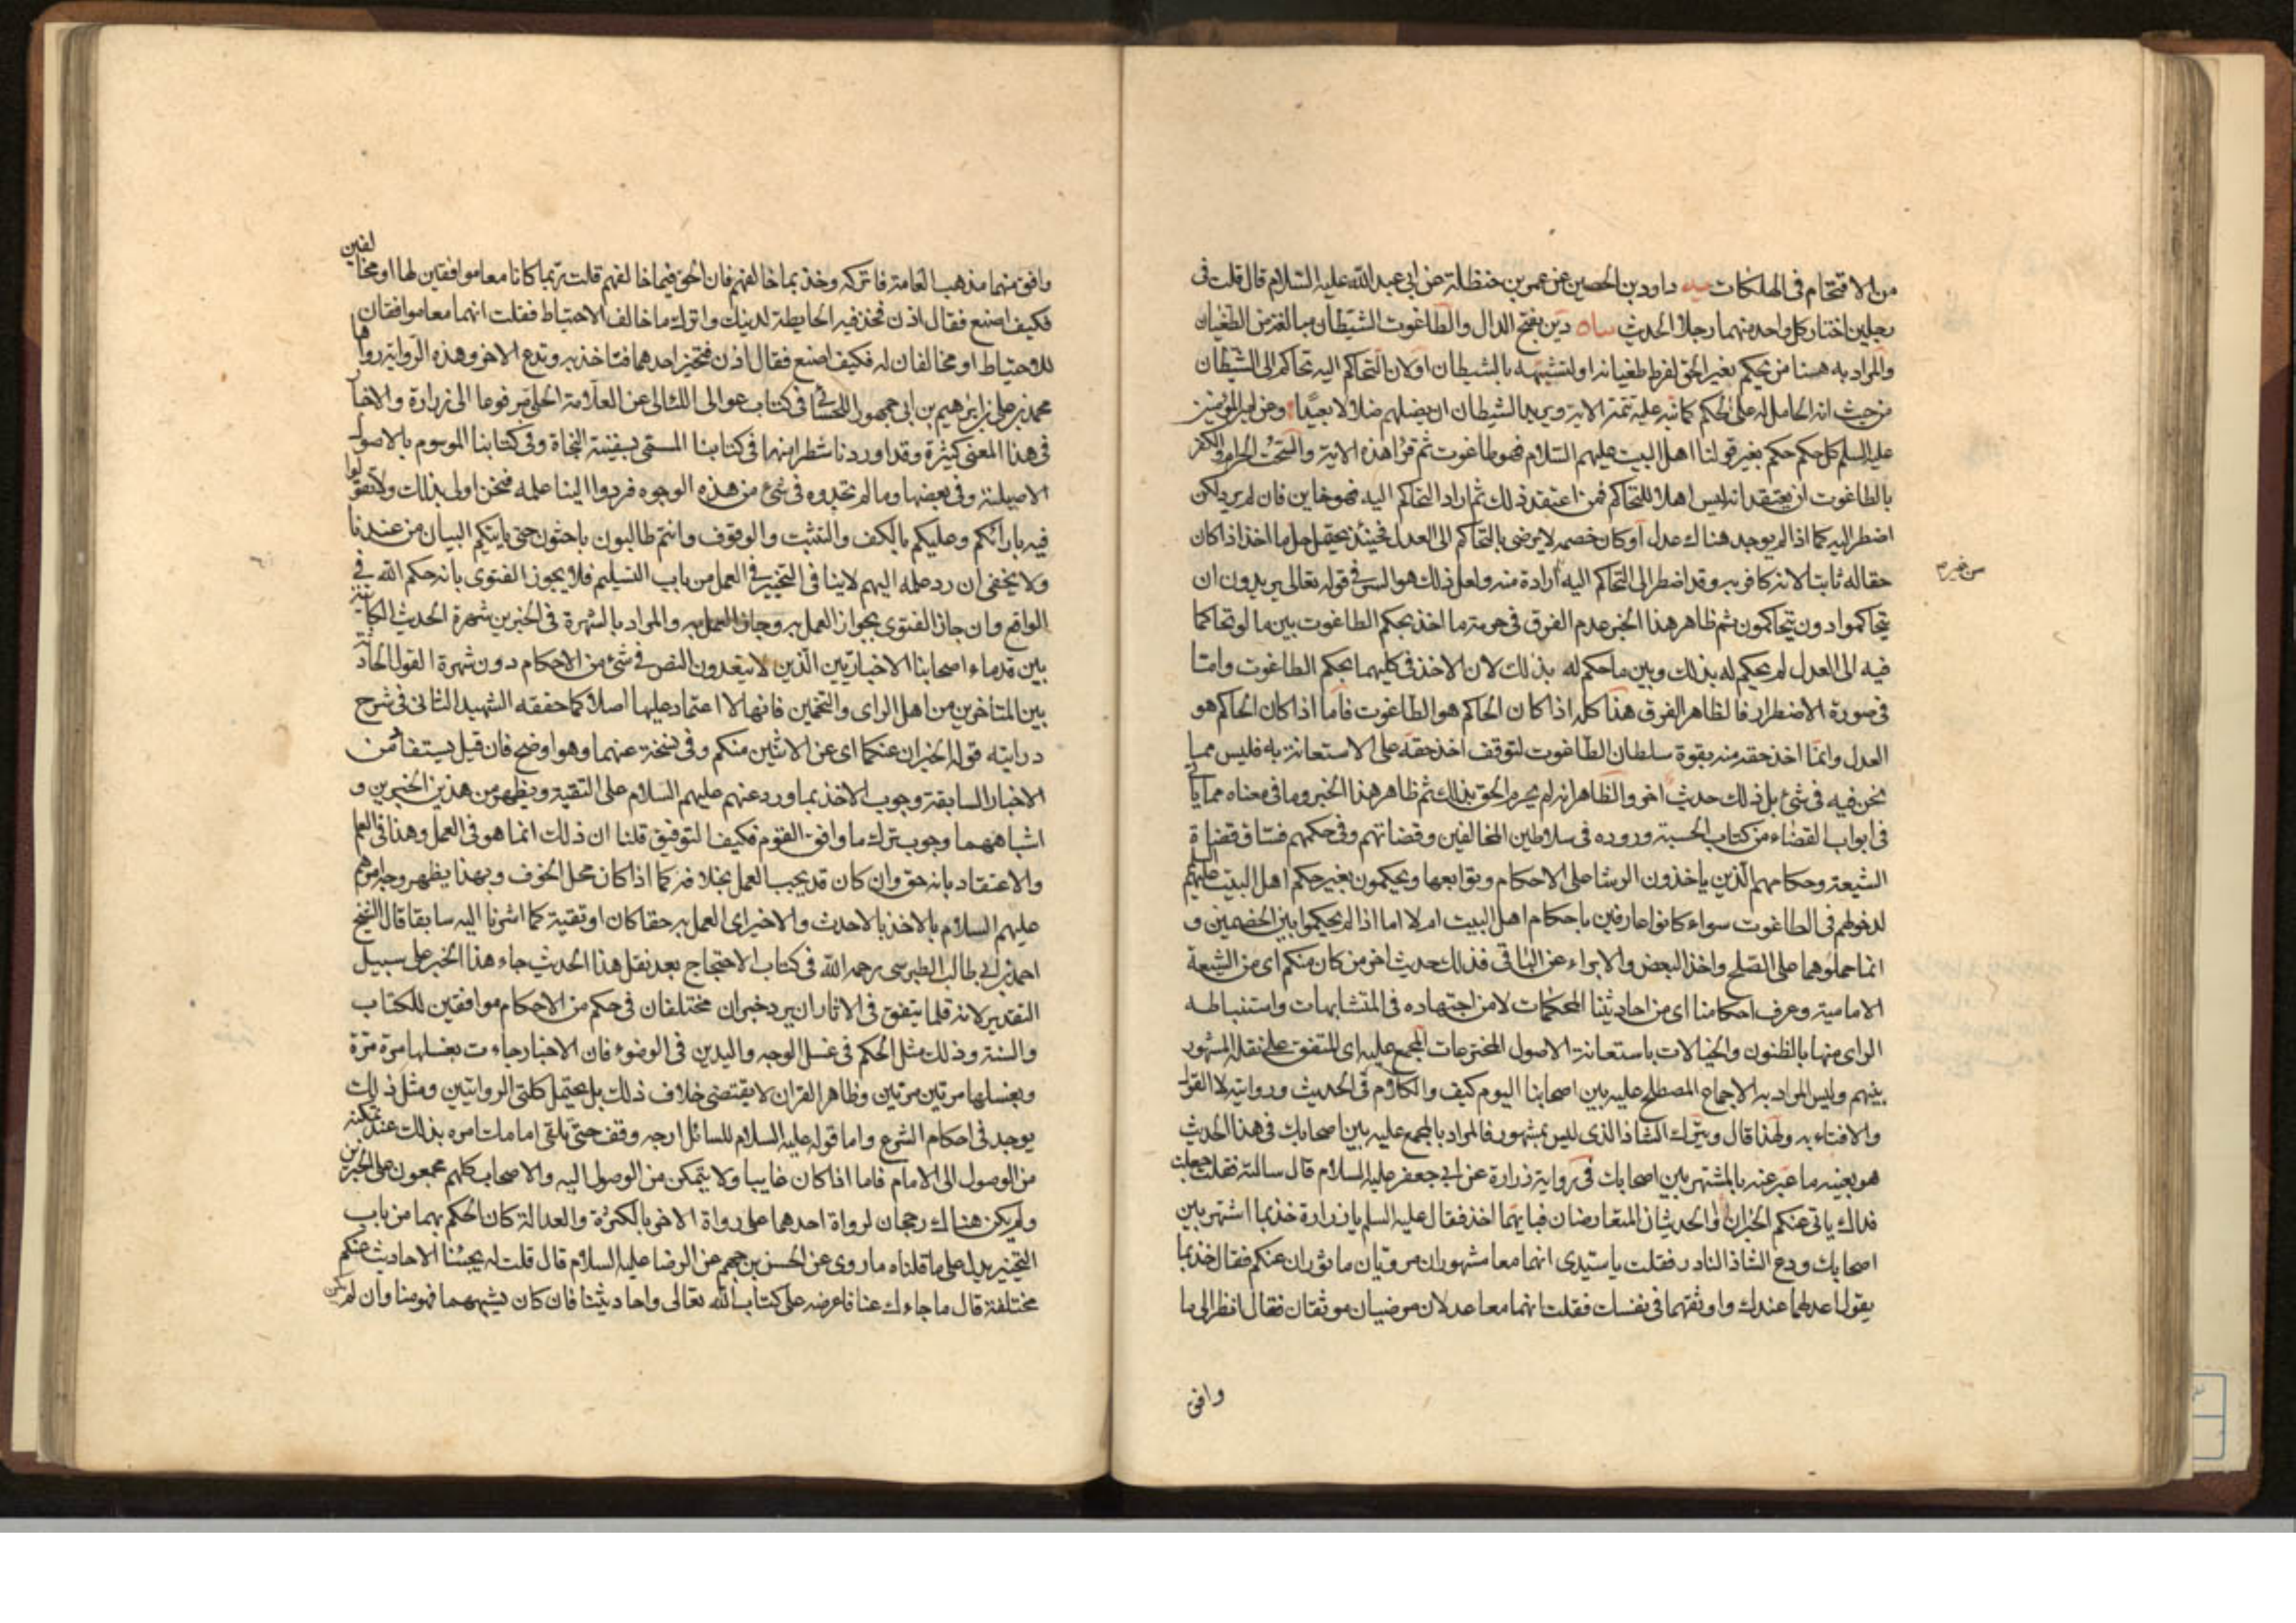 من الاقتحام فى الهلكات يه داود بن الحصين عن عمر بن حنظلة عن ابى عبد الله عليه السلام قال قلت فى
رجلين اختار كل واحد منهما رجلا الحديث بيان دين بفتح الدال والطاغوت الشيطان مبالغة من الطغيان
والمراد به هنا من يحكم بغير الحق لفرط طغيانه او لتشبهه بالشيطان او لان التحاكم اليه تحاكم الى الشيطان
من حيث انه الحامل له على الحكم كما نبه عليه تتمة الاية ويريد الشيطان ان يضلهم ضلالا بعيدا وعن امير المؤمنين
عليه السلم كل حكم حكم بغير قولنا اهل البيت عليهم السلام فهو طاغوت ثم قرا هذه الاية والسحت الحرام والكفر
بالطاغوت ان يعتقد انه ليس اهلا للتحاكم فمن اعتقد ذلك ثم اراد التحاكم اليه فهو خاين فان لم يرد لكن
اضطر اليه كما اذا لم يوجد هناك عدل او كان خصمه لا يرضى بالتحاكم الى العدل فحينئذ يحتمل حل ما اخذ اذا كان
حقا له ثابتا لانه كافر به وقد اضطر الى التحاكم اليه ارادة منه ولعل ذلك هو السر فى قوله تعالى يريدون ان
من غيره
يتحاكموا دون يتحاكمون ثم ظاهر هذا الخبر عدم الفرق فى حرمة ما اخذ بحكم الطاغوت بين ما لو تحاكما
فيه الى العدل لم يحكم له بذلك وبين ما حكم له بذلك لان الاخذ فى كليهما بحكم الطاغوت واما
فى صورة الاضطرار فالظاهر الفرق هذا كله اذا كان الحاكم هو الطاغوت فاما اذا كان الحاكم هو
العدل وانما اخذ حقه منه بقوة سلطان الطاغوت لتوقف اخذ حقه على الاستعانة به فليس مما
نحن فيه فى شئ بل ذلك حديث اخر والظاهر انه لم يحرم الحق بذلك ثم ظاهر هذا الخبر وما فى معناه مما ياتى
فى ابواب القضاء من كتاب الحسبة وروده فى سلاطين المخالفين وقضاتهم وفى حكمهم فساق قضاة
الشيعة وحكامهم الذين ياخذون الرشا على الاحكام وتوابعها ويحكمون بغير حكم اهل البيت عليهم السلم
لدخولهم فى الطاغوت سواء كانوا عارفين باحكام اهل البيت ام لا اما اذا لم يحكموا بين الخصمين و
انما حملوهما على الصلح واخذ البعض والابراء عن الباقى فذلك حديث اخر من كان منكم اى من الشيعة
الامامية وعرف احكامنا اى من احاديثنا المحكمات لا من اجتهاده فى المتشابهات واستنباطه
الراى منها بالظنون والخيالات باستعانة الاصول المخترعات المجمع عليه اى المتفق على نقله المشهور
بينهم وليس المراد به الاجماع المصطلح عليه بين اصحابنا اليوم كيف والكلام فى الحديث وروايته لا القول
والافتاء به ولهذا قال ويترك الشاذ الذى ليس بمشهور فالمراد بالمجمع عليه بين اصحابك فى هذا الحديث
هو بعينه ما عبر عنه بالمشتهر بين اصحابك فى رواية زرارة عن ابى جعفر عليه السلام قال سالته فقلت جعلت
فداك ياتى عنكم الخبران والحديثان المتعارضان فبايهما اخذ فقال عليه السلم يا زرارة خذ بما اشتهر بين
اصحابك ودع الشاذ النادر فقلت يا سيدى انهما معا مشهوران مرويان ماثوران عنكم فقال خذ بما
يقول اعدلهما عندك واوثقهما فى نفسك فقلت انهما معا عدلان مرضيان موثقان فقال انظر الى ما
وافق
وافق منهما مذهب العامة فاتركه وخذ بما خالفهم فان الحق فيما خالفهم قلت ربما كانا معا موافقين لهم او مخالفين
فكيف اصنع فقال اذن فخذ فيه الحايطة لدينك واترك ما خالف الاحتياط فقلت انهما معا موافقان
للاحتياط او مخالفان له فكيف اصنع فقال اذن فتخير احدهما فتاخذ به وتدع الاخر وهذه الرواية رواها
محمد بن على بن ابراهيم بن ابى جمهور اللحسائى فى كتاب عوالى اللئالى عن العلامة الحلى مرفوعا الى زرارة والاخبار
فى هذا المعنى كثيرة وقد اوردنا شطرا منها فى كتابنا المسمى بسفينة النجاة وفى كتابنا الموسوم بالاصول
الاصيلة وفى بعضها وما لم تجدوه فى شئ من هذه الوجوه فردوا الينا علمه فنحن اولى بذلك ولا تقولوا
فيه بارائكم وعليكم بالكف والتثبت والوقوف وانتم طالبون باحثون حتى ياتيكم البيان من عندنا
ولا يخفى ان رد علمه اليهم لا ينافى التخيير فى العمل من باب التسليم فلا يجوز الفتوى بانه حكم الله فى
الواقع وان جاز الفتوى بجواز العمل به وجاز العمل به والمراد بالشهرة فى الخبرين شهرة الحديث الكاينة
بين قدماء اصحابنا الاخباريين الذين لا يتعدون النص فى شئ من الاحكام دون شهرة القول الحادثة
بين المتأخرين من اهل الراى والتخمين فانها لا اعتماد عليها اصلا كما حققه الشهيد الثانى فى شرح
درايته قوله الخبران عنكما اى عن الاثنين منكم وفى نسخة عنهما وهو اوضح فان قيل يستفاد من
الاخبار السابقة وجوب الاخذ بما ورد عنهم عليهم السلام على التقية ويظهر من هذين الخبرين و
اشباههما وجوب ترك ما وافق القوم فكيف التوفيق قلنا ان ذلك انما هو فى العمل وهذا فى العلم
والاعتقاد بانه حق وان كان قد يجب العمل بخلافه كما اذا كان محل الخوف وبهذا يظهر وجه امرهم
عليهم السلام بالاخذ بالاحدث والاخير اى العمل به حقا كان او تقية كما اشرنا اليه سابقا قال الشيخ
احمد بن ابى طالب الطبرسى رحمه الله فى كتاب الاحتجاج بعد نقل هذا الحديث جاء هذا الخبر على سبيل
التقدير لانه قلما يتفق فى الاثار ان يرد خبران مختلفان فى حكم من الاحكام موافقين للكتاب
والسنة وذلك مثل الحكم فى غسل الوجه واليدين فى الوضوء فان الاخبار جاءت بغسلها مرة مرة
وبغسلها مرتين مرتين وظاهر القران لا يقتضى خلاف ذلك بل يحتمل كلتى الروايتين ومثل ذلك
يوجد فى احكام الشرع واما قوله عليه السلام للسائل ارجه وقف حتى تلقى امامك امره بذلك عند تمكنه
من الوصول الى الامام فاما اذا كان غايبا ولا يتمكن من الوصول اليه والاصحاب كلهم مجمعون على الخبرين
ولم يكن هناك رجحان لرواة احدهما على رواة الاخر بالكثرة والعدالة كان الحكم بهما من باب
التخيير يدل على ما قلناه ما روى عن الحسن بن جهم عن الرضا عليه السلام قال قلت له يجيئنا الاحاديث عنكم
مختلفة قال ما جاءك عنا فاعرضه على كتاب الله تعالى واحاديثنا فان كان يشبههما فهو منا وان لم يكن